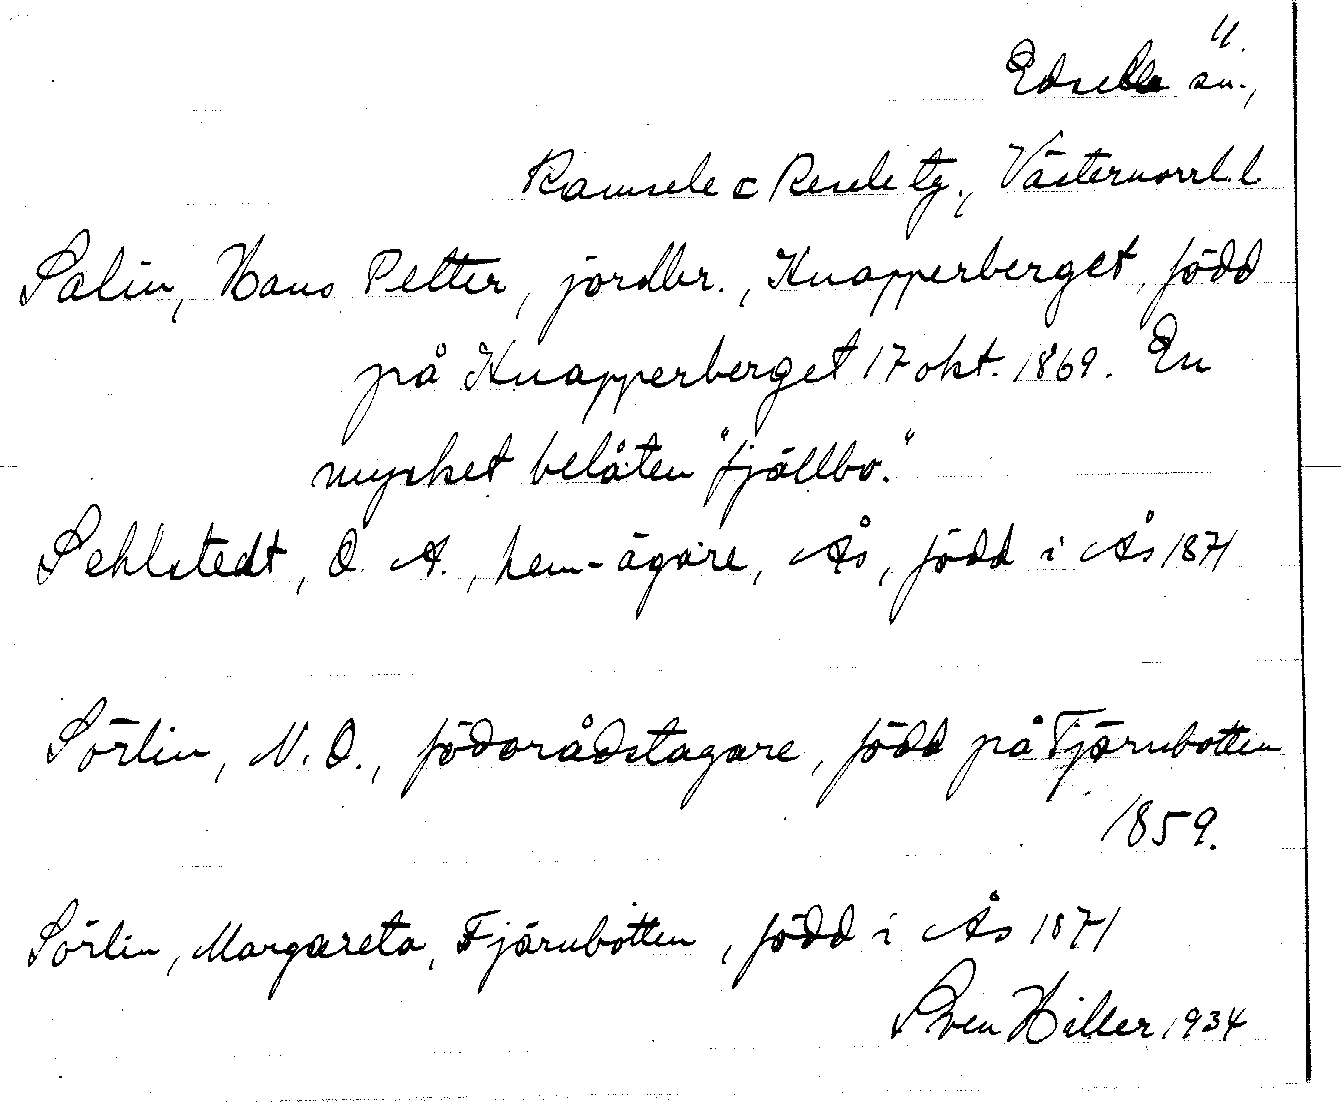 11.
Edsele sn.,
Ramsele o Resele tg., Västernorrl. l
Salin, Hans Petter, jordbr., Knapperberget, född
på Knapperberget 17 okt. 1869. En
mycket belåten "fjällbo."
Sehlstedt, O. A., hem-ägare, Ås, född i Ås 1871
Sörlin, N. O., födorådstagare, född på Tjärnbotten
1859.
Sörlin, Margareta, Tjärnbotten, född i Ås 1871
Sven Hiller 1934